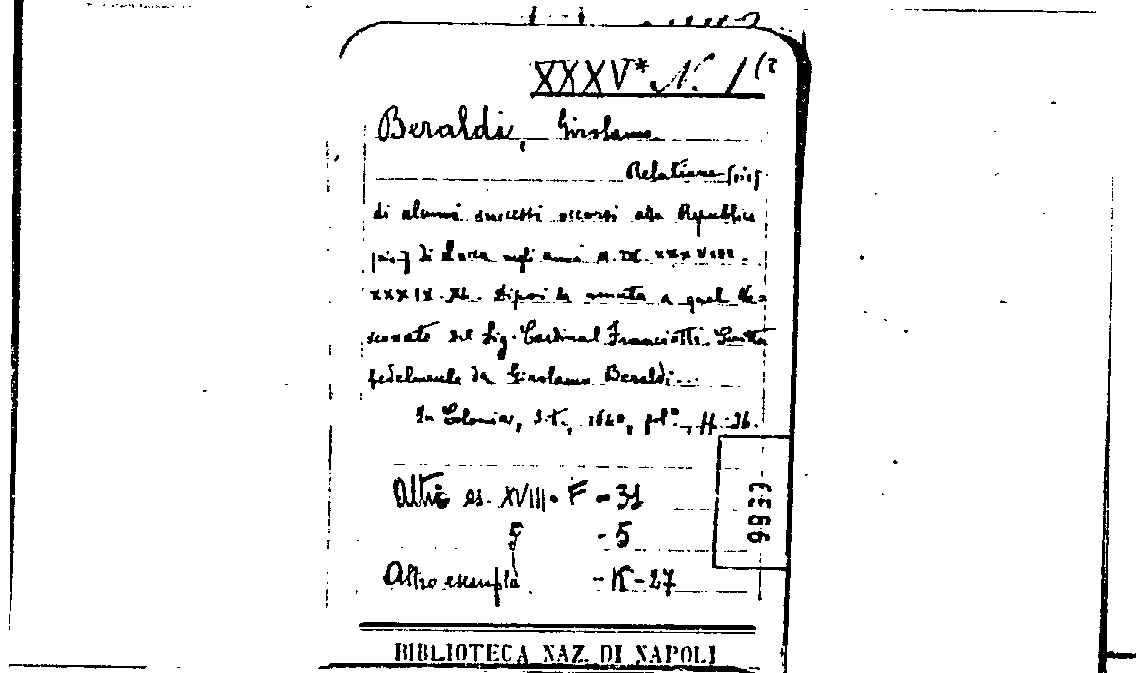 XXXV* N. 1 (2
Beraldi, Girolamo
Relatione [sic]
di alcuni successi occorsi alla Republica
[sic] di Lucca negli anni M.DC.XXXVIII.
XXXIX.XL. Dipoi la venuta a quel Ve=
scovato del Sig. Cardinal Franciotti. Scritta
fedelmente da Girolamo Beraldi...
In Colonia, s.t., 1640, fol°., pp. 36.
Altri es. XVIII. F - 31
5 - 5
Altro esempla - K - 27
6633
BIBLIOTECA NAZ. DI NAPOLI